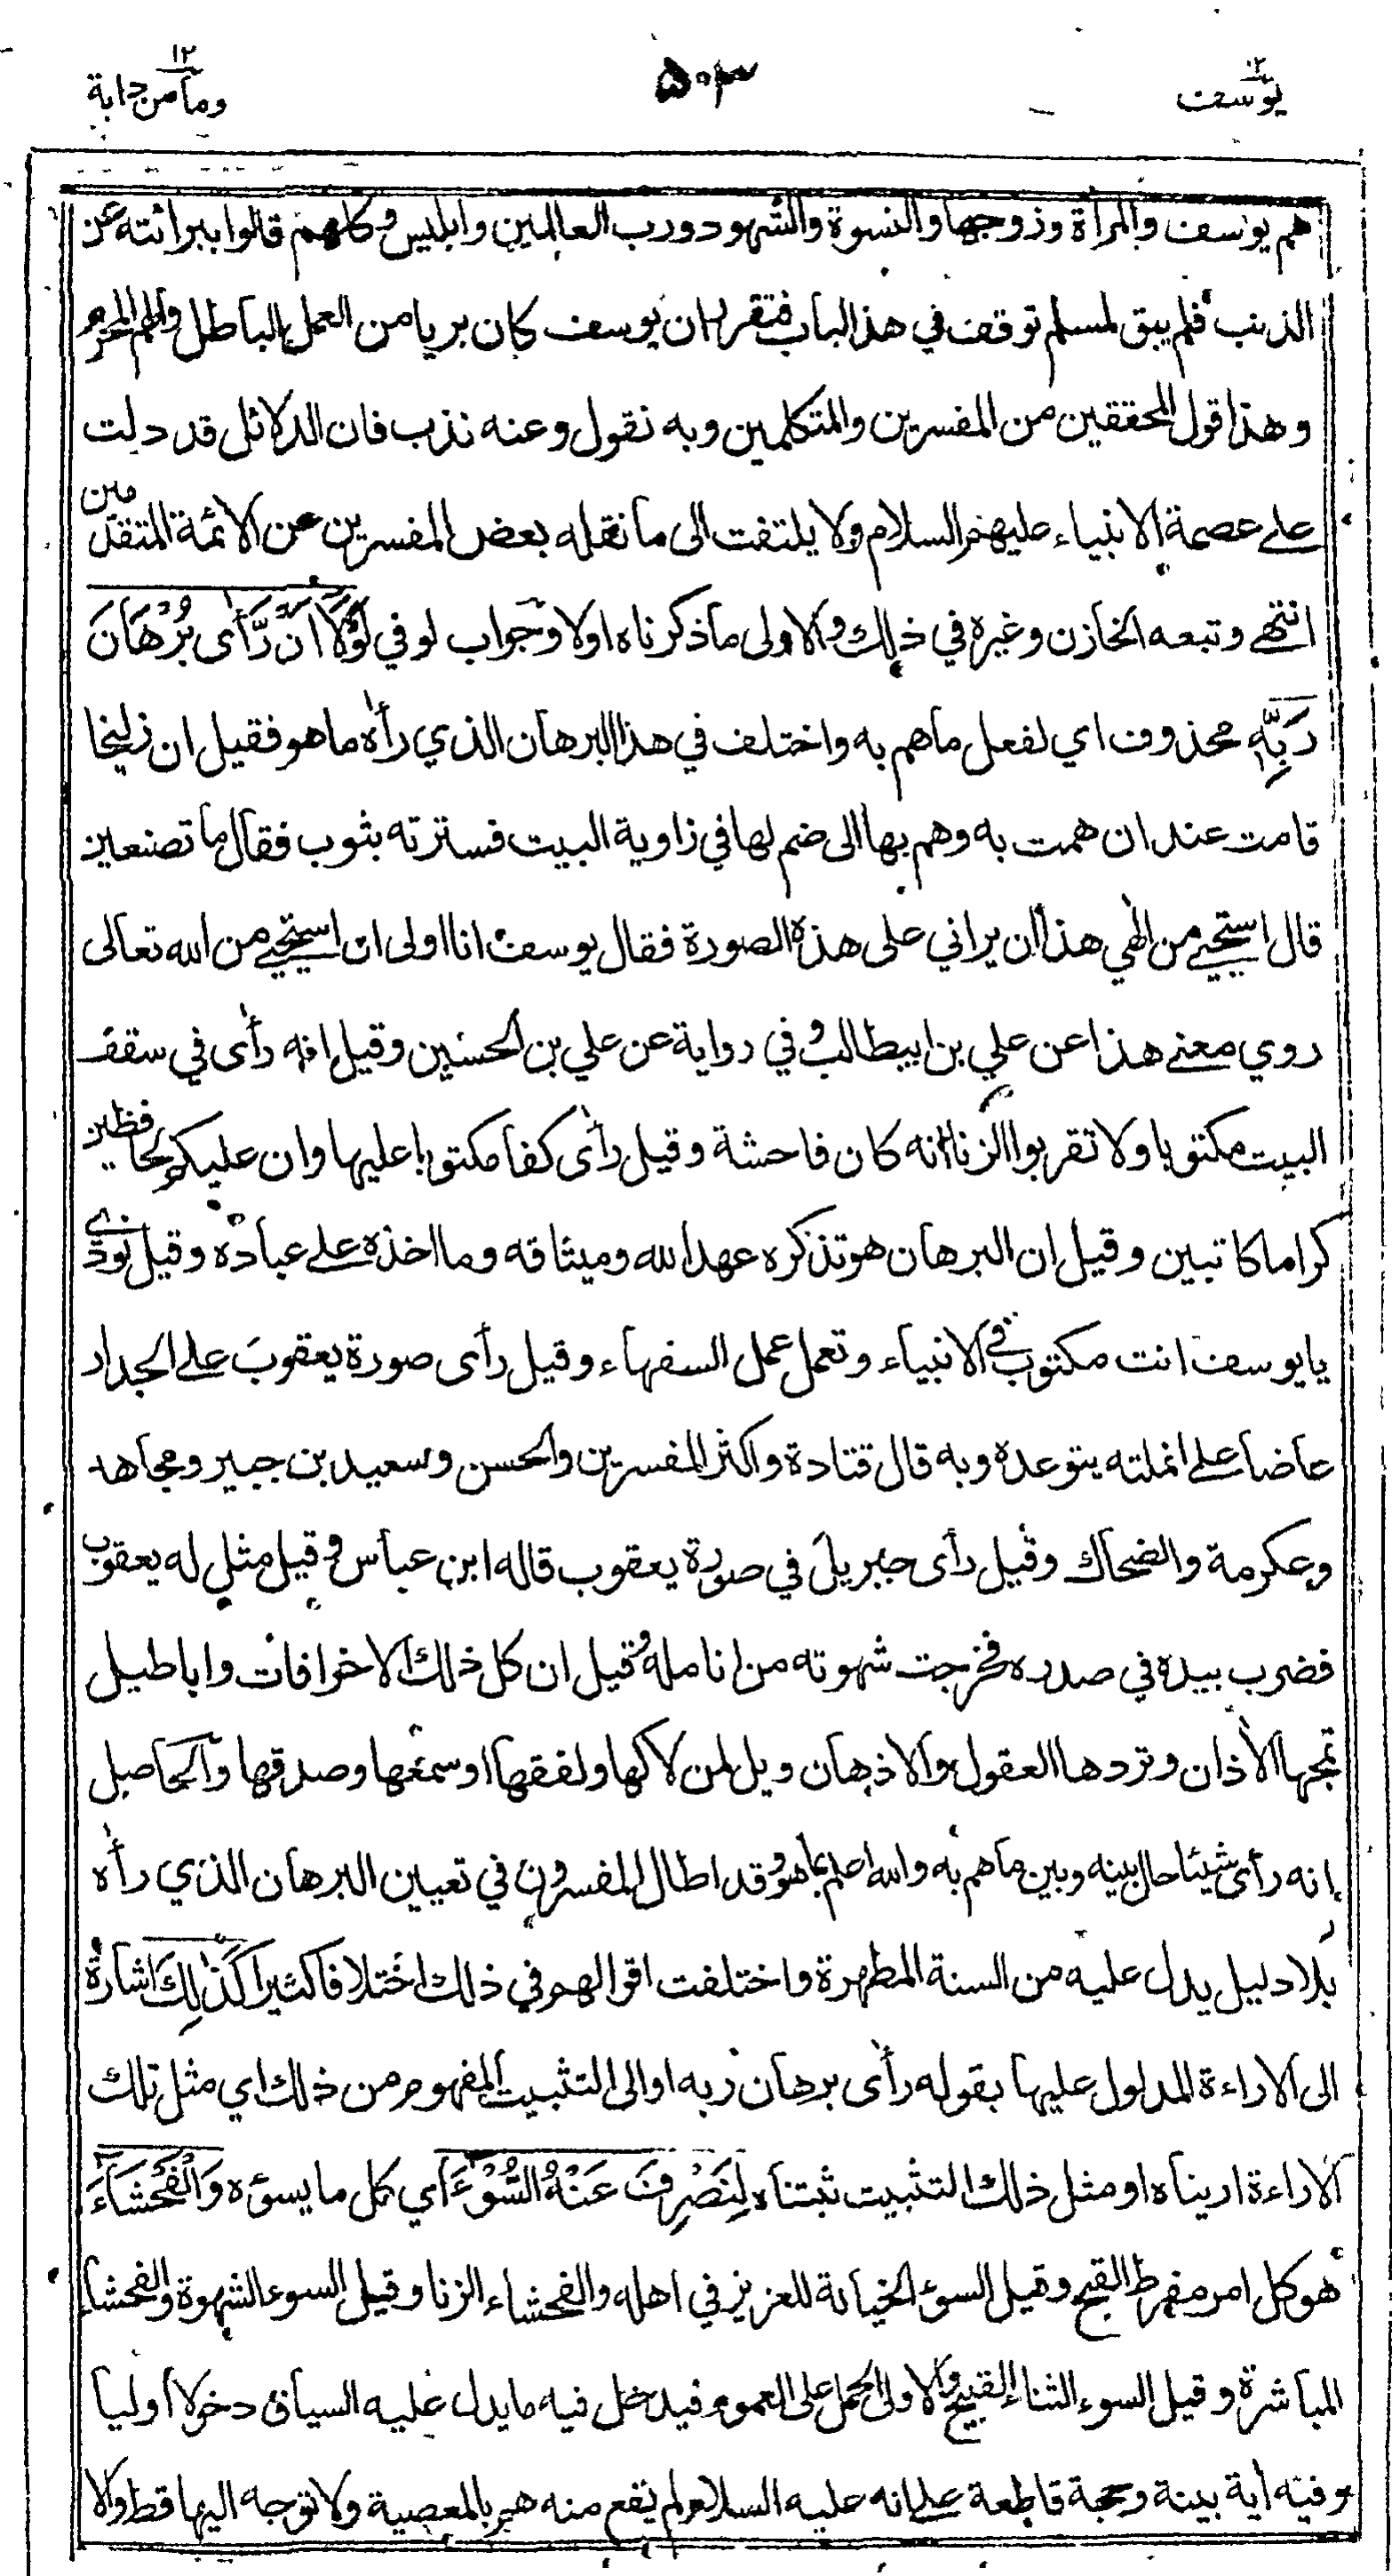 يوسف ١٢
٥٠٣
وما من دابة ١٢
هم يوسف والمرأة وزوجها والنسوة والشهود ورب العالمين وابليس وكلهم قالوا ببرائته عن
الذنب فلم يبق لمسلم توقف في هذا الباب فتقرر ان يوسف كان بريا من العمل الباطل والهم المحرم
وهذا قول المحققين من المفسرين والمتكلمين وبه نقول وعنه نذب فان الدلائل قد دلت
على عصمة الانبياء عليهم السلام ولا يلتفت الى ما نقله بعض المفسرين عن الائمة المتقدمين
انتهى وتبعه الخازن وغيره في ذلك والاولى ما ذكرناه اولا وجواب لو في لَوْلَا أَنْ رَّأَى بُرْهَانَ
رَبِّهِ محذوف اي لفعل ما هم به واختلف في هذا البرهان الذي رأه ما هو فقيل ان زليخا
قامت عند ان همت به وهم بها الى ضم لها في زاوية البيت فسترته بثوب فقال ما تصنعين
قال استحيي من الهي هذا ان يراني على هذه الصورة فقال يوسف انا اولى ان استحيي من الله تعالى
روي معنى هذا عن علي بن ابيطالب وفي رواية عن علي بن الحسين وقيل انه رأى في سقف
البيت مكتوبا ولا تقربوا الزنا انه كان فاحشة وقيل رأى كفا مكتوبا عليها وان عليكم لحافظين
كراما كاتبين وقيل ان البرهان هو تذكره عهد الله وميثاقه وما اخذه على عباده وقيل نودي
يا يوسف انت مكتوب في الانبياء وتعمل عمل السفهاء وقيل رأى صورة يعقوب على الجدار
عاضا على انملته يتوعده وبه قال قتادة واكثر المفسرين والحسن وسعيد بن جبير ومجاهد
وعكرمة والضحاك وقيل رأى جبريل في صورة يعقوب قاله ابن عباس وقيل مثل له يعقوب
فضرب بيده في صدره فخرجت شهوته من انامله وقيل ان كل ذلك الا خرافات واباطيل
تمجها الأذان وتردها العقول والاذهان ويل لمن لاكها ولفقها او سمعها وصدقها والحاصل
انه رأى شيئا حال بينه وبين ما هم به والله اعلم بما هو وقد اطال المفسرون في تعيين البرهان الذي رأه
بلا دليل يدل عليه من السنة المطهرة واختلفت اقوالهم في ذلك اختلافا كثيرا كَذٰلِكَ اشارة
الى الاراءة المدلول عليها بقوله رأى برهان ربه او الى التثبيت المفهوم من ذلك اي مثل تلك
الاراءة اريناه او مثل ذلك التثبيت ثبتناه لِنَصْرِفَ عَنْهُ السُّوْءَ اي كل ما يسوءه وَالْفَحْشَاءَ
هو كل امر مفرط القبح وقيل السوء الخيانة للعزيز في اهله والفحشاء الزنا وقيل السوء الشهوة والفحشاء
المباشرة وقيل السوء الثناء القبيح والاولى الحمل على العموم فيدخل فيه ما يدل عليه السياق دخولا أوليا
وفيه أية بينة وحجة قاطعة على انه عليه السلام لم يقع منه هم بالمعصية ولا توجه اليها قط والا